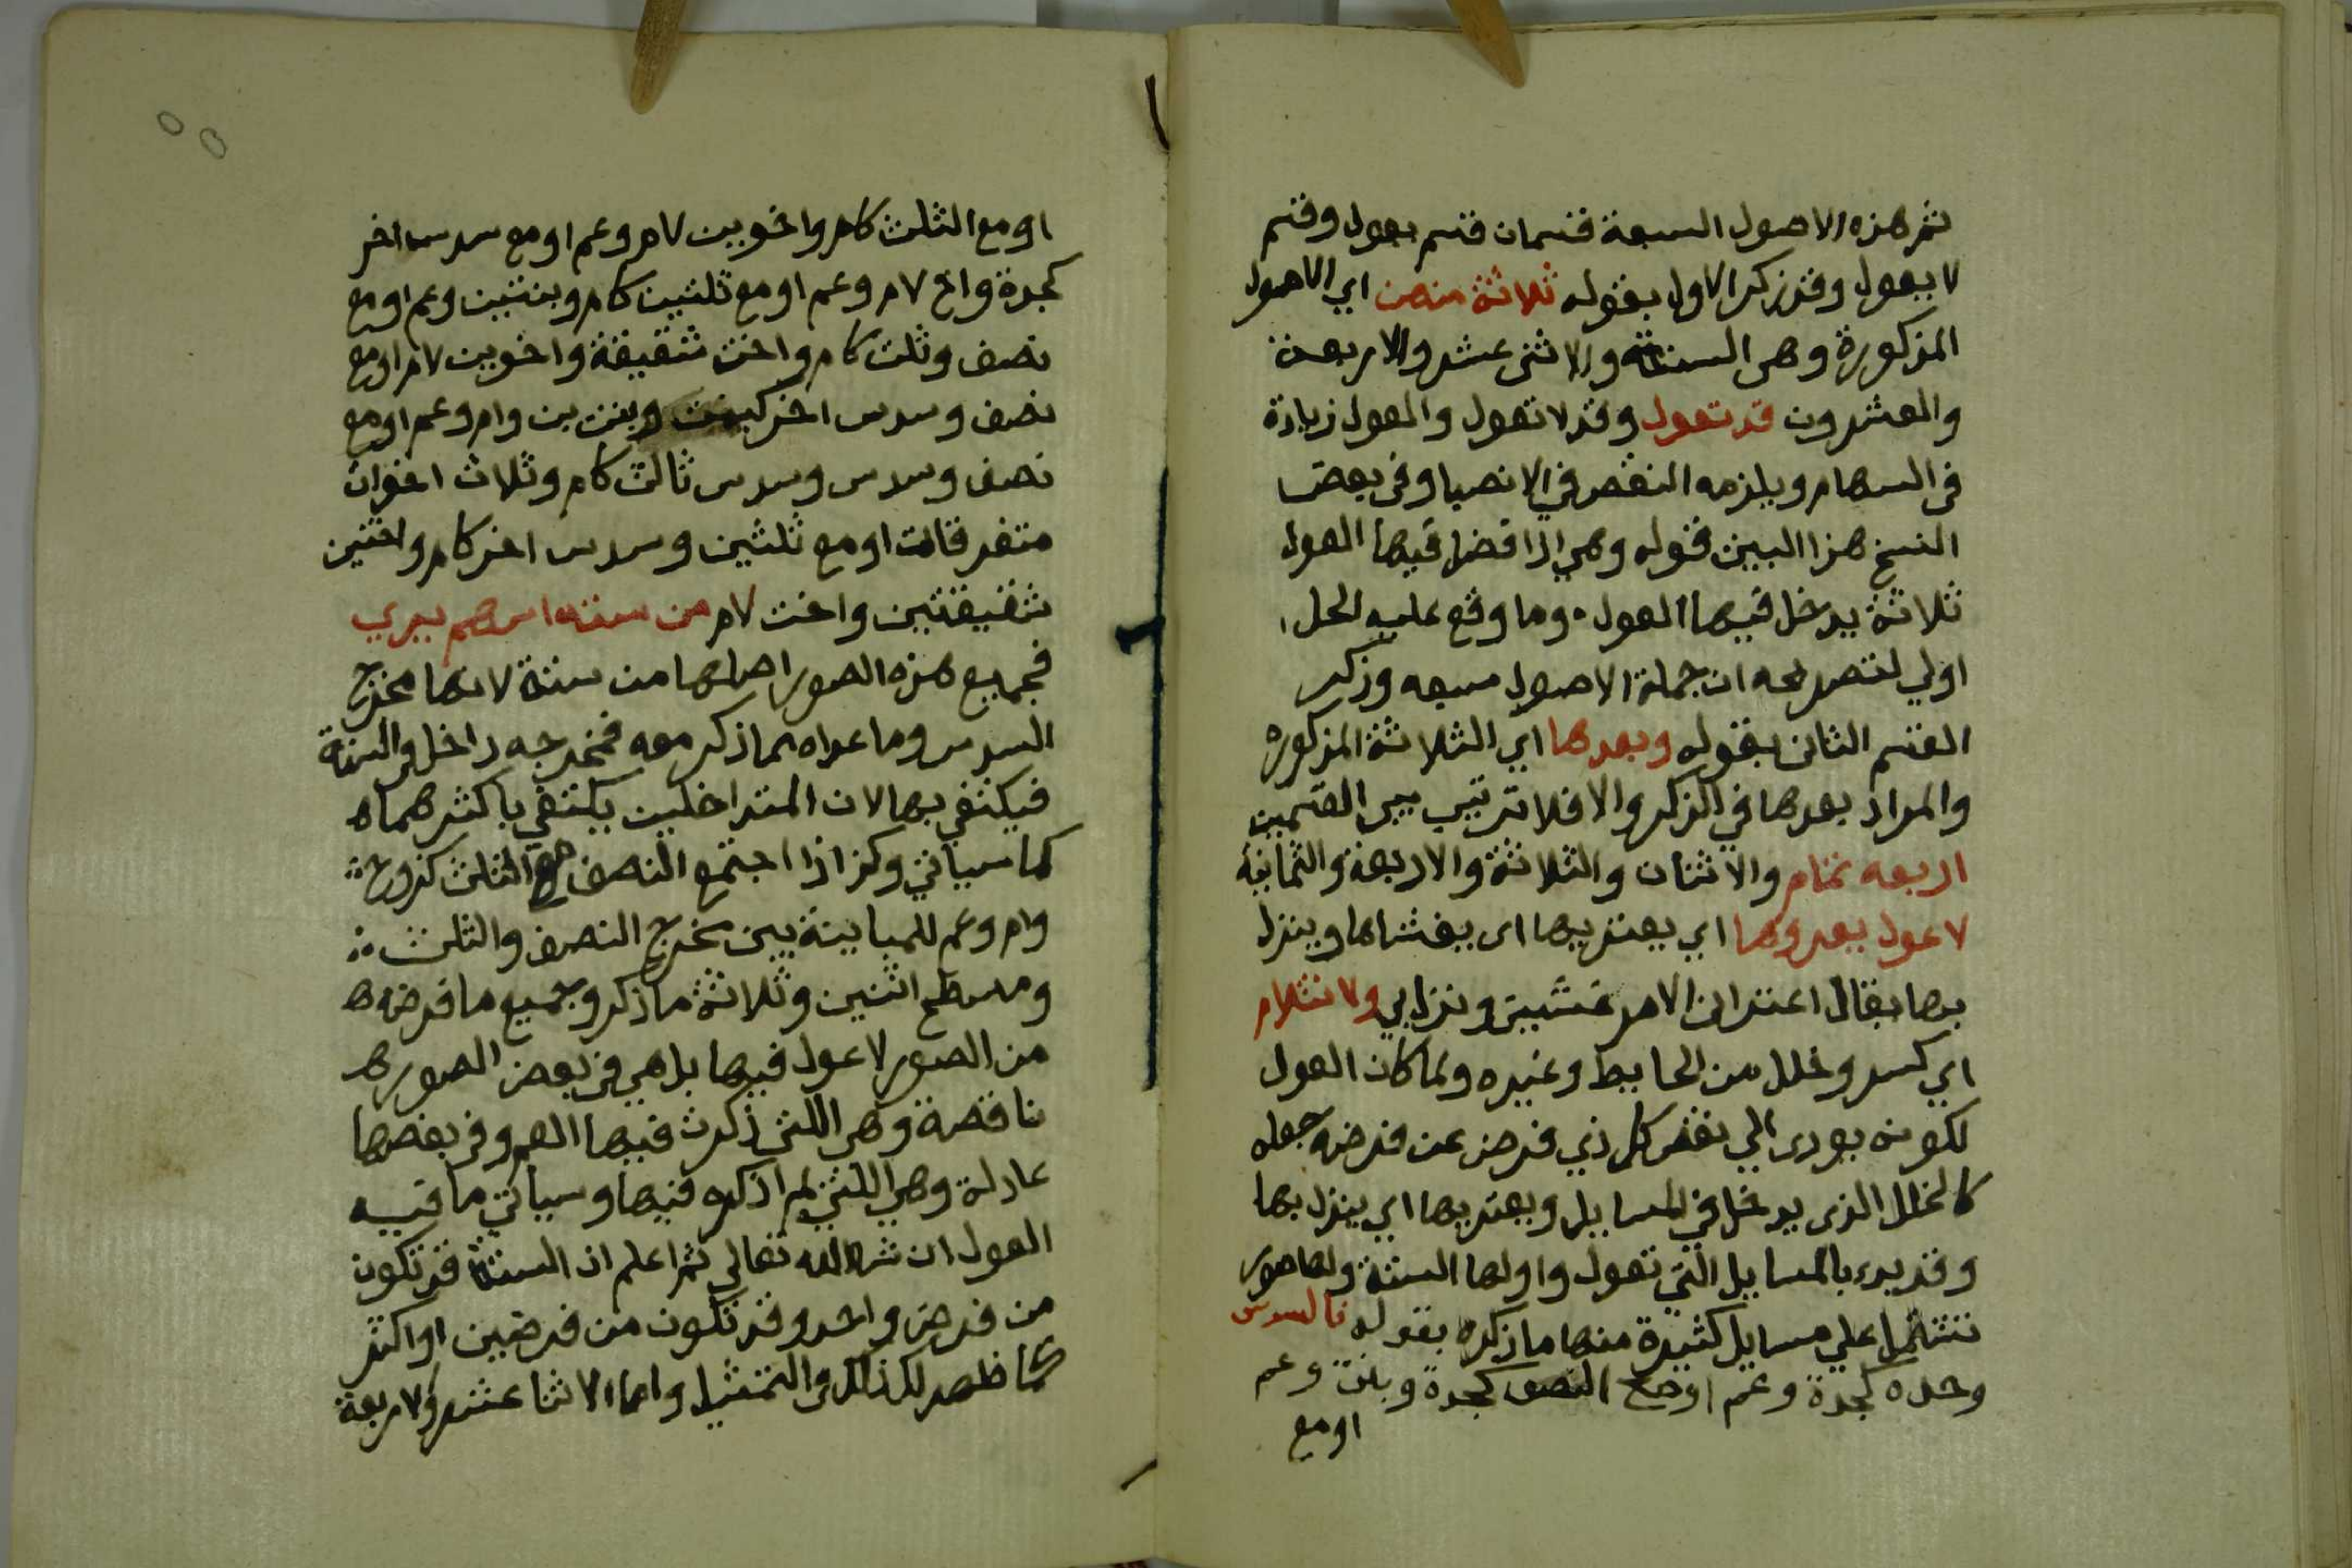 ثم هذه الاصول السبعة قسمان قسم يعول وقسم
لا يعول وقد ذكر الاول بقوله ثلاثة منهن اي الاصول
المذكورة وهي الستة والاثنى عشر والاربعة
والعشرون قد تعول وقد لا تعول والعول زيادة
في السهام ويلزمه النقص في الانصبا وفي بعض
النسخ هذا البيت قوله وهي اذا فصل فيها القول
ثلاثة يدخل فيها العول وما وقع عليه الحل
اولي لتصريحه ان جملة الاصول سبعه وذكر
القسم الثاني بقوله وبعدها اي الثلاثة المذكوره
والمراد بعدها في الذكر والا فلا ترتيب بين القسمين
اربعه تمام والاثنان والثلاثة والاربعة والثمانية
لا عول يعروها اي يعتريها اي يغشاها وينزل
بها يقال اعتراني الامر غشيني ونزل بي ولا انثلام
اي كسر وخلل من الحايط وغيره ولما كان العول
لكونه يودي الي نقص كل ذي فرض عن فرضه جعله
كالخلل الذي يدخل في المسايل ويعتريها اي ينزل بها
وقد بدء بالمسايل التي تعول واولها الستة ولها صور
تشتمل علي مسايل كثيرة منها ما ذكره بقوله فالسدس
وحده كجدة وعم او مع النصف كجدة وبنت وعم
او مع
او مع الثلث كام واخوين لام وعم او مع سدس اخر
كجدة واخ لام وعم او مع ثلثين كام وبنتين وعم او مع
نصف وثلث كام واخت شقيقة واخوين لام او مع
نصف وسدس اخر كبنت وبنت بن وام وعم او مع
نصف وسدس وسدس ثالث كام وثلاث اخوات
متفرقات او مع ثلثين وسدس اخر كام واختين
شقيقتين واخت لام من ستة اسهم يري
فجميع هذه الصور اصلها من ستة لانها مخرج
السدس وما عداه مما ذكر معه فمخرجه داخل في الستة
فيكتفي بها لان المتداخلين يكتفي باكثرهما ه
كما سياتي وكذا اذا اجتمع النصف مع الثلث كزوج
وام وعم للمباينة بين مخرج النصف والثلث
ومسطح اثنين وثلاثة ما ذكر وجميع ما فرضه ه
من الصور لا عول فيها بل هي في بعض الصور ه
ناقصة وهي اللتي ذكرت فيها العم وفي بعضها
عادلة وهي اللتي لم اذكره فيها وسياتي ما فيه
العول ان شاء الله تعالي ثم اعلم ان الستة قد تكون
من فرض واحد وقد تكون من فرضين او اكثر
كما ظهر لك ذلك في التمثيل واما الاثنا عشر والاربعة